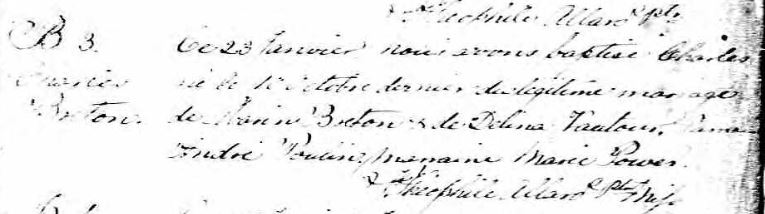 & Théophile Allard ptr
B 3. Ce 23 Janvier nous avons baptisé Charles
né le 1r octobre dernier du légitime mariage
Breton. de Marin Breton & de Délina Vautour. Parrain
André Poulin, marraine Marie Power.
& Théophile Allard ptr Miss